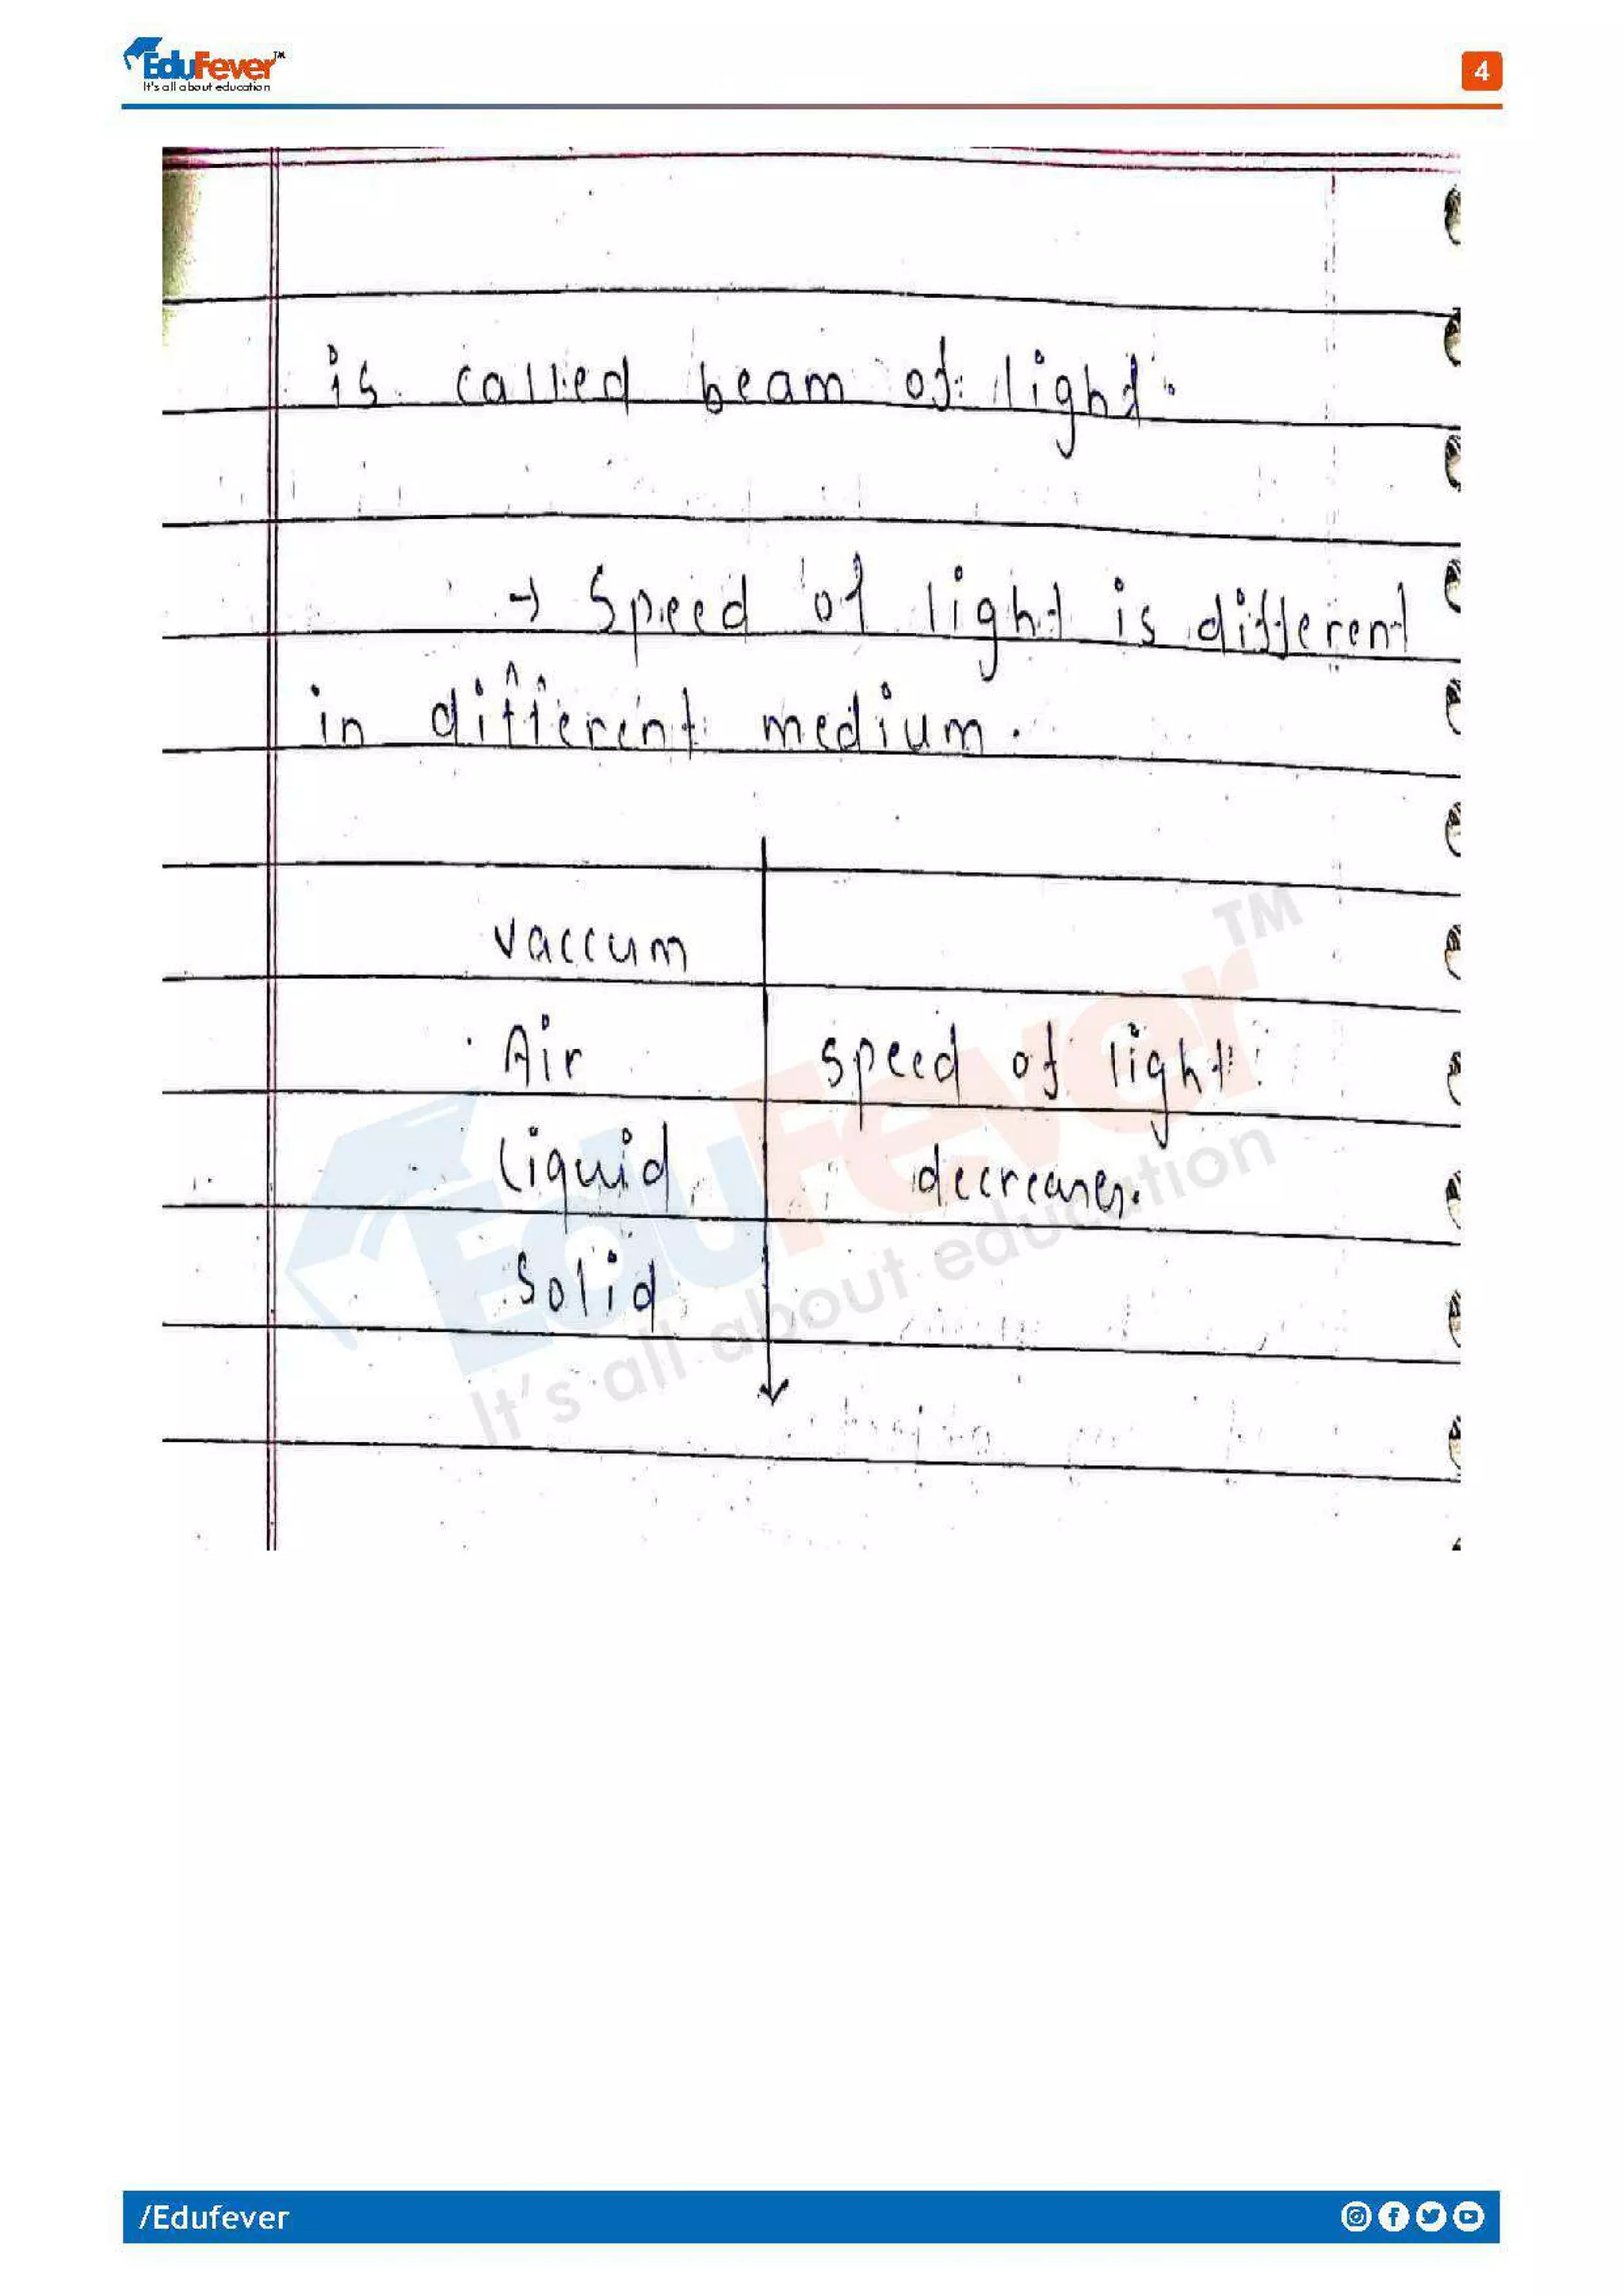 EduFever™
It's all about education
4
is called beam of light.
→ Speed of light is different
in different medium.
vaccum
Air
speed of light
Liquid
decreases.
Solid
EduFever™
It's all about education
/Edufever